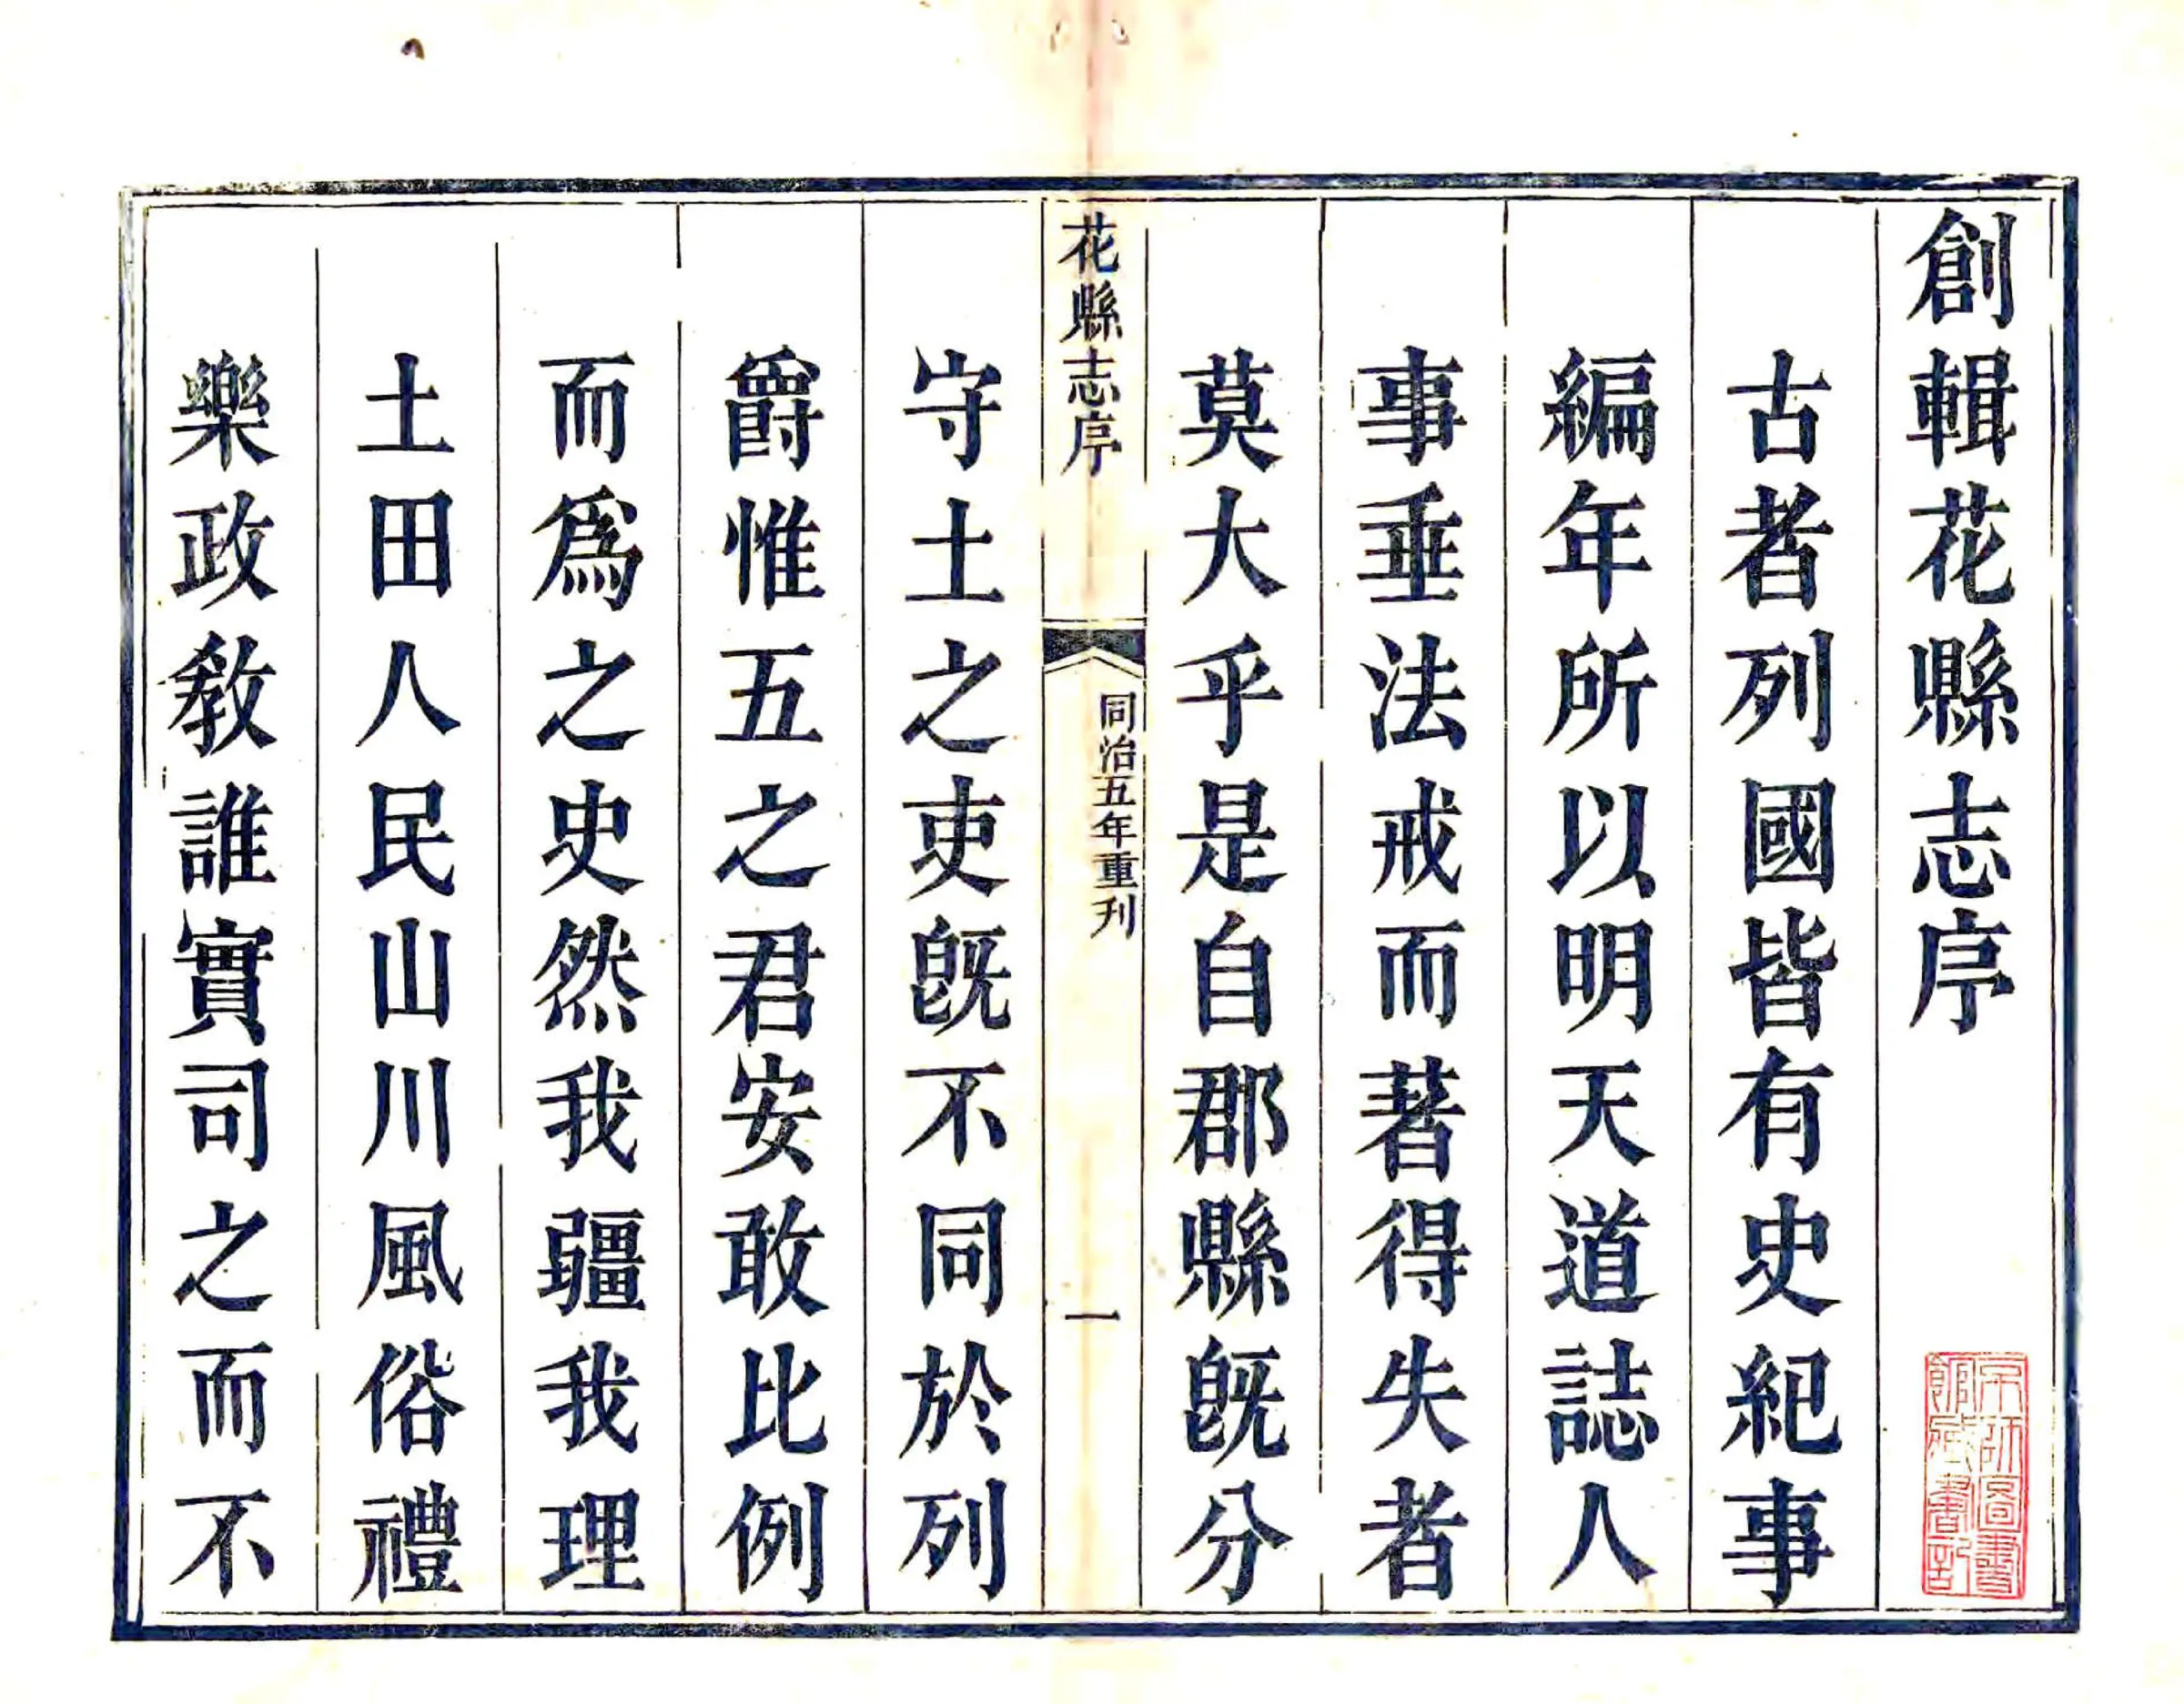 創輯花縣志序
古者列國皆有史紀事
編年所以明天道誌人
事垂法戒而著得失者
莫大乎是自郡縣既分
花縣志序
同治五年重刊
一
守土之吏既不同於列
爵惟五之君安敢比例
而為之史然我疆我理
土田人民山川風俗禮
樂政教誰實司之而不
京師圖書
館藏書記